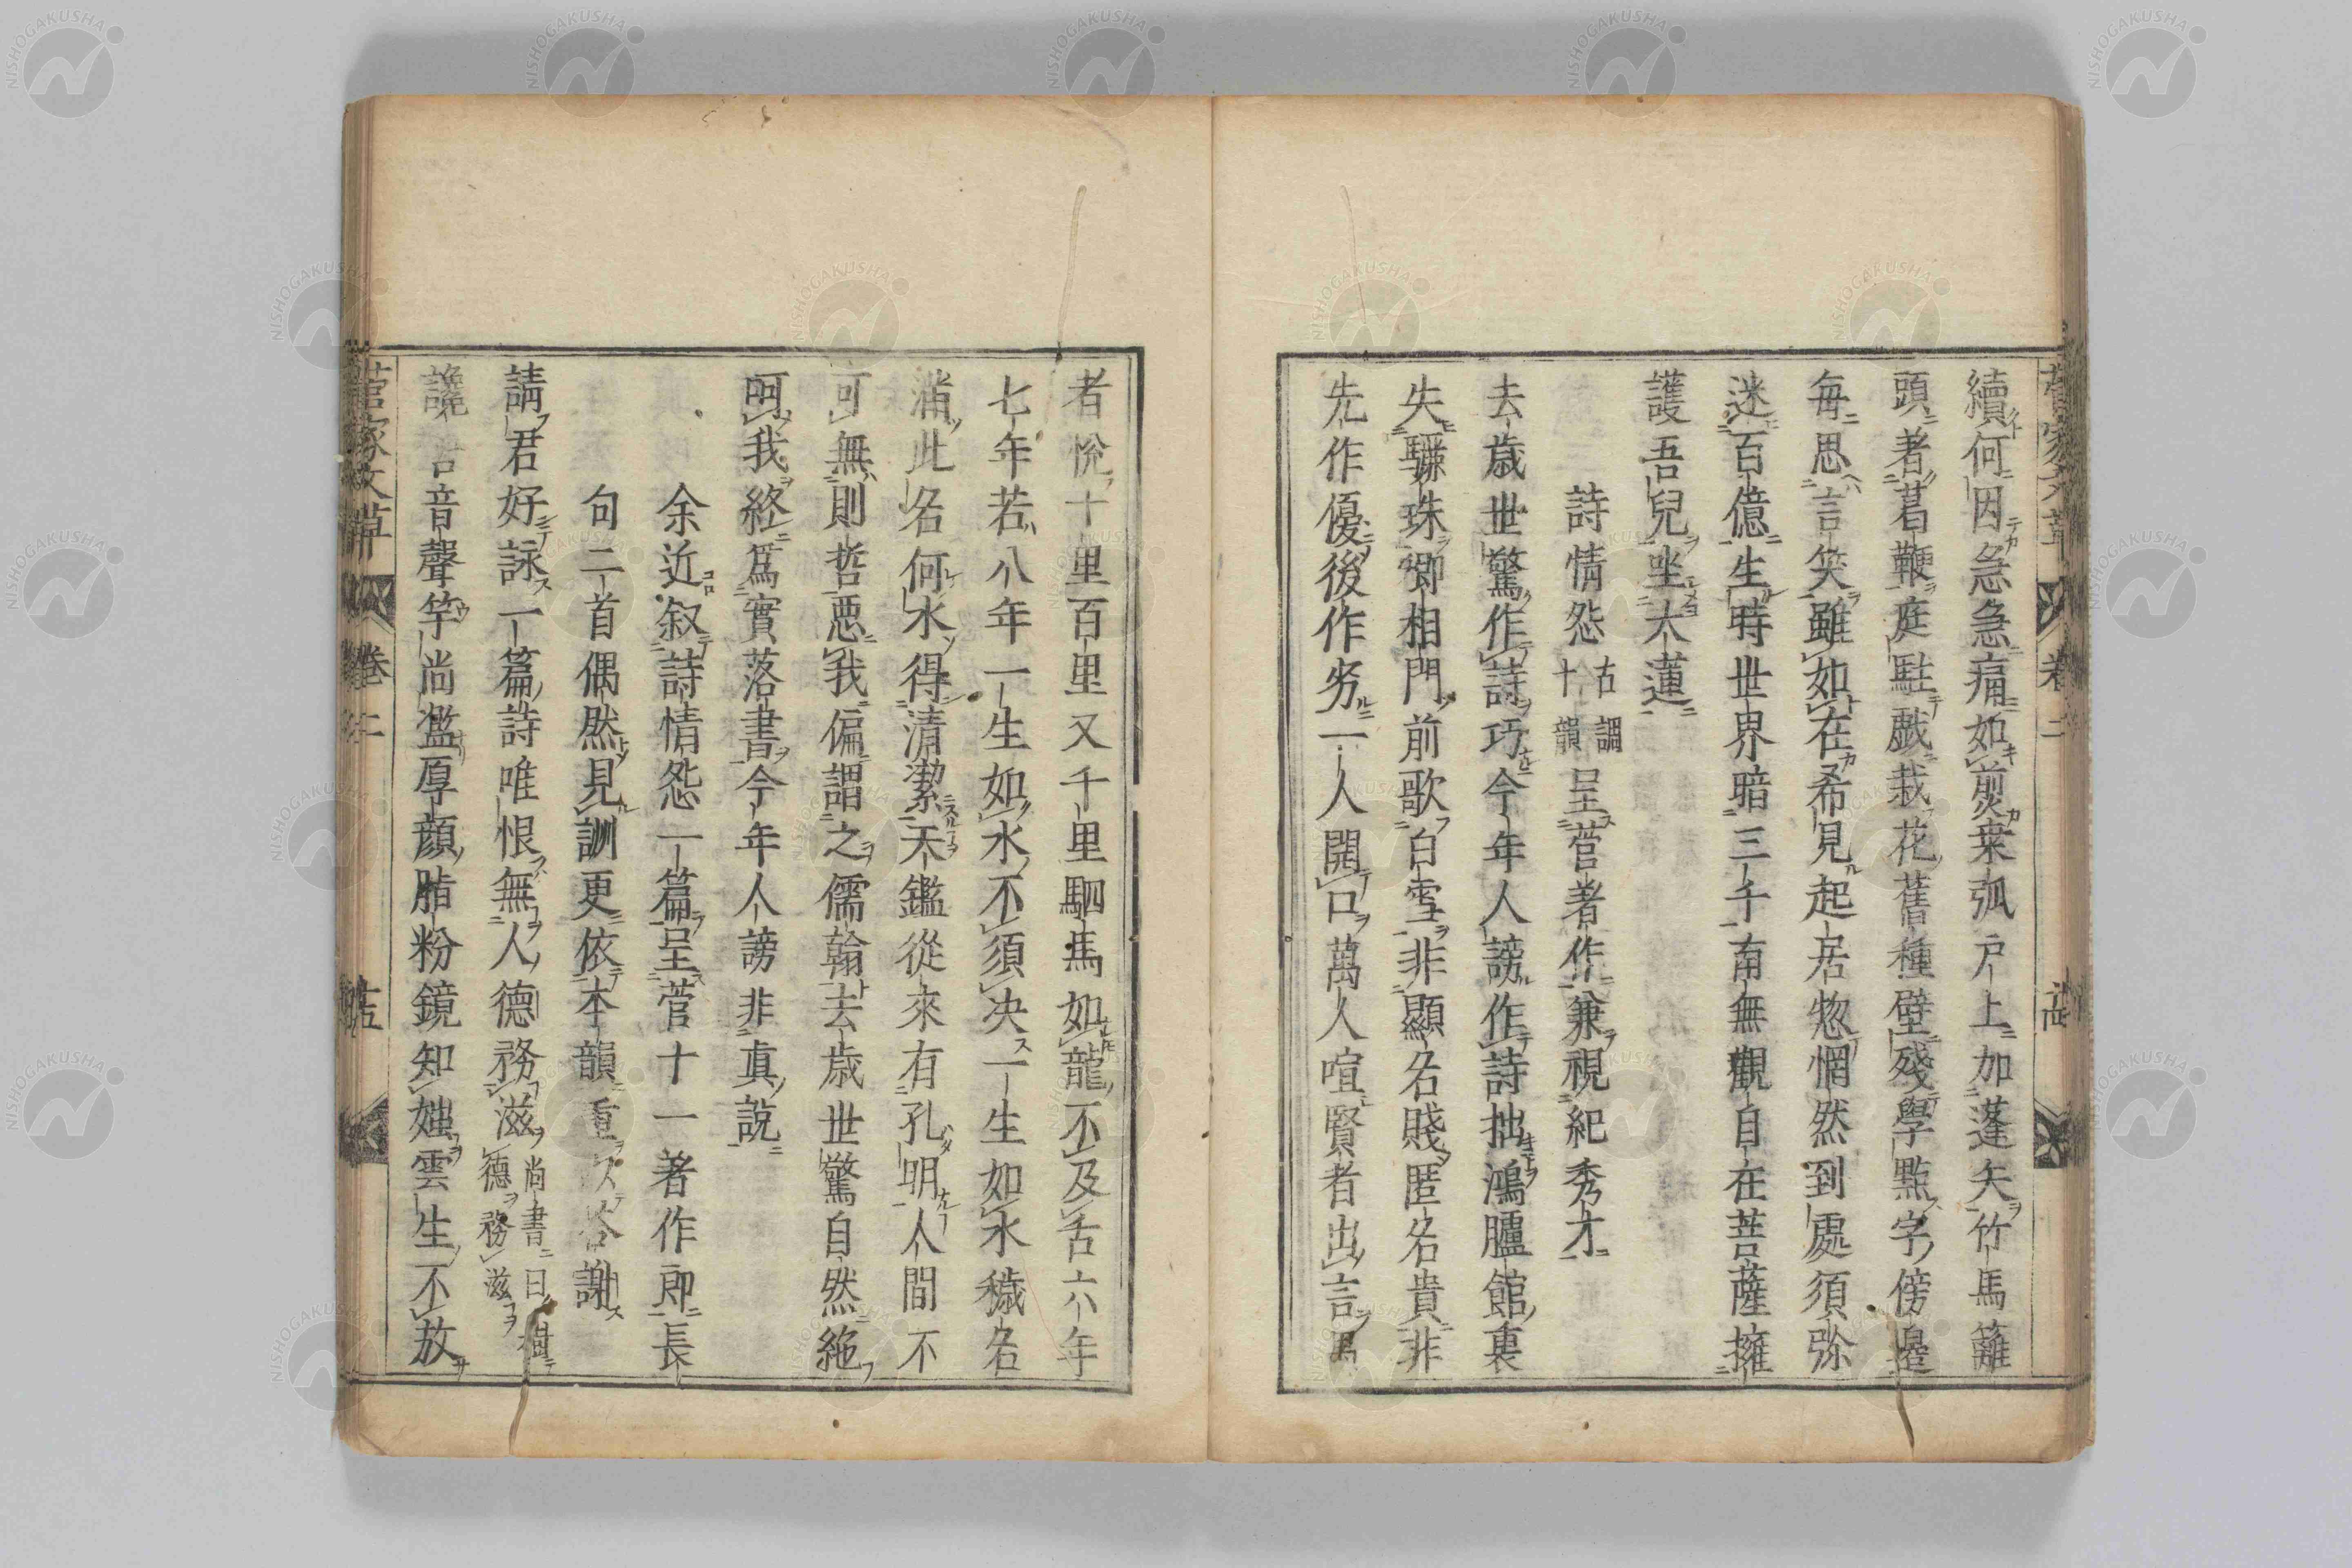 續何因急急痛如煎桒弧戸上加蓬矢竹馬籬
頭著葛鞭庭駐戲栽花舊種壁殘學點字傍邊
毎思言笑雖如在希見起居惣惘然到處須弥
迷百億生時世界暗三千南無觀自在菩薩擁
護吾兒坐大蓮
詩情怨古調十韻呈菅著作兼視紀秀才
去歳世驚作詩巧今年人謗作詩拙鴻臚館裏
失驪珠卿相門前歌白雪非顯名賤匿名貴非
先作優後作劣一人開口萬人喧賢者出言愚
者悦十里百里又千里駟馬如龍不及舌六年
七年若八年一生如水不須决一生如水穢名
滿此名何水得清潔天鑑從來有孔明人間不
可無則哲惡我偏謂之儒翰去歳世驚自然絶
呵我終爲實落書今年人謗非真説
余近叙詩情怨一篇呈菅十一著作郎長
句二首偶然見訓更依本韻重 答 謝
請君好詠一篇詩唯恨無人德務滋尚書曰樹德務滋
讒舌音聲竽尚濫厚顔脂粉鏡知媸雲生不放
菅家文草 卷二
NISHOGAKUSHA